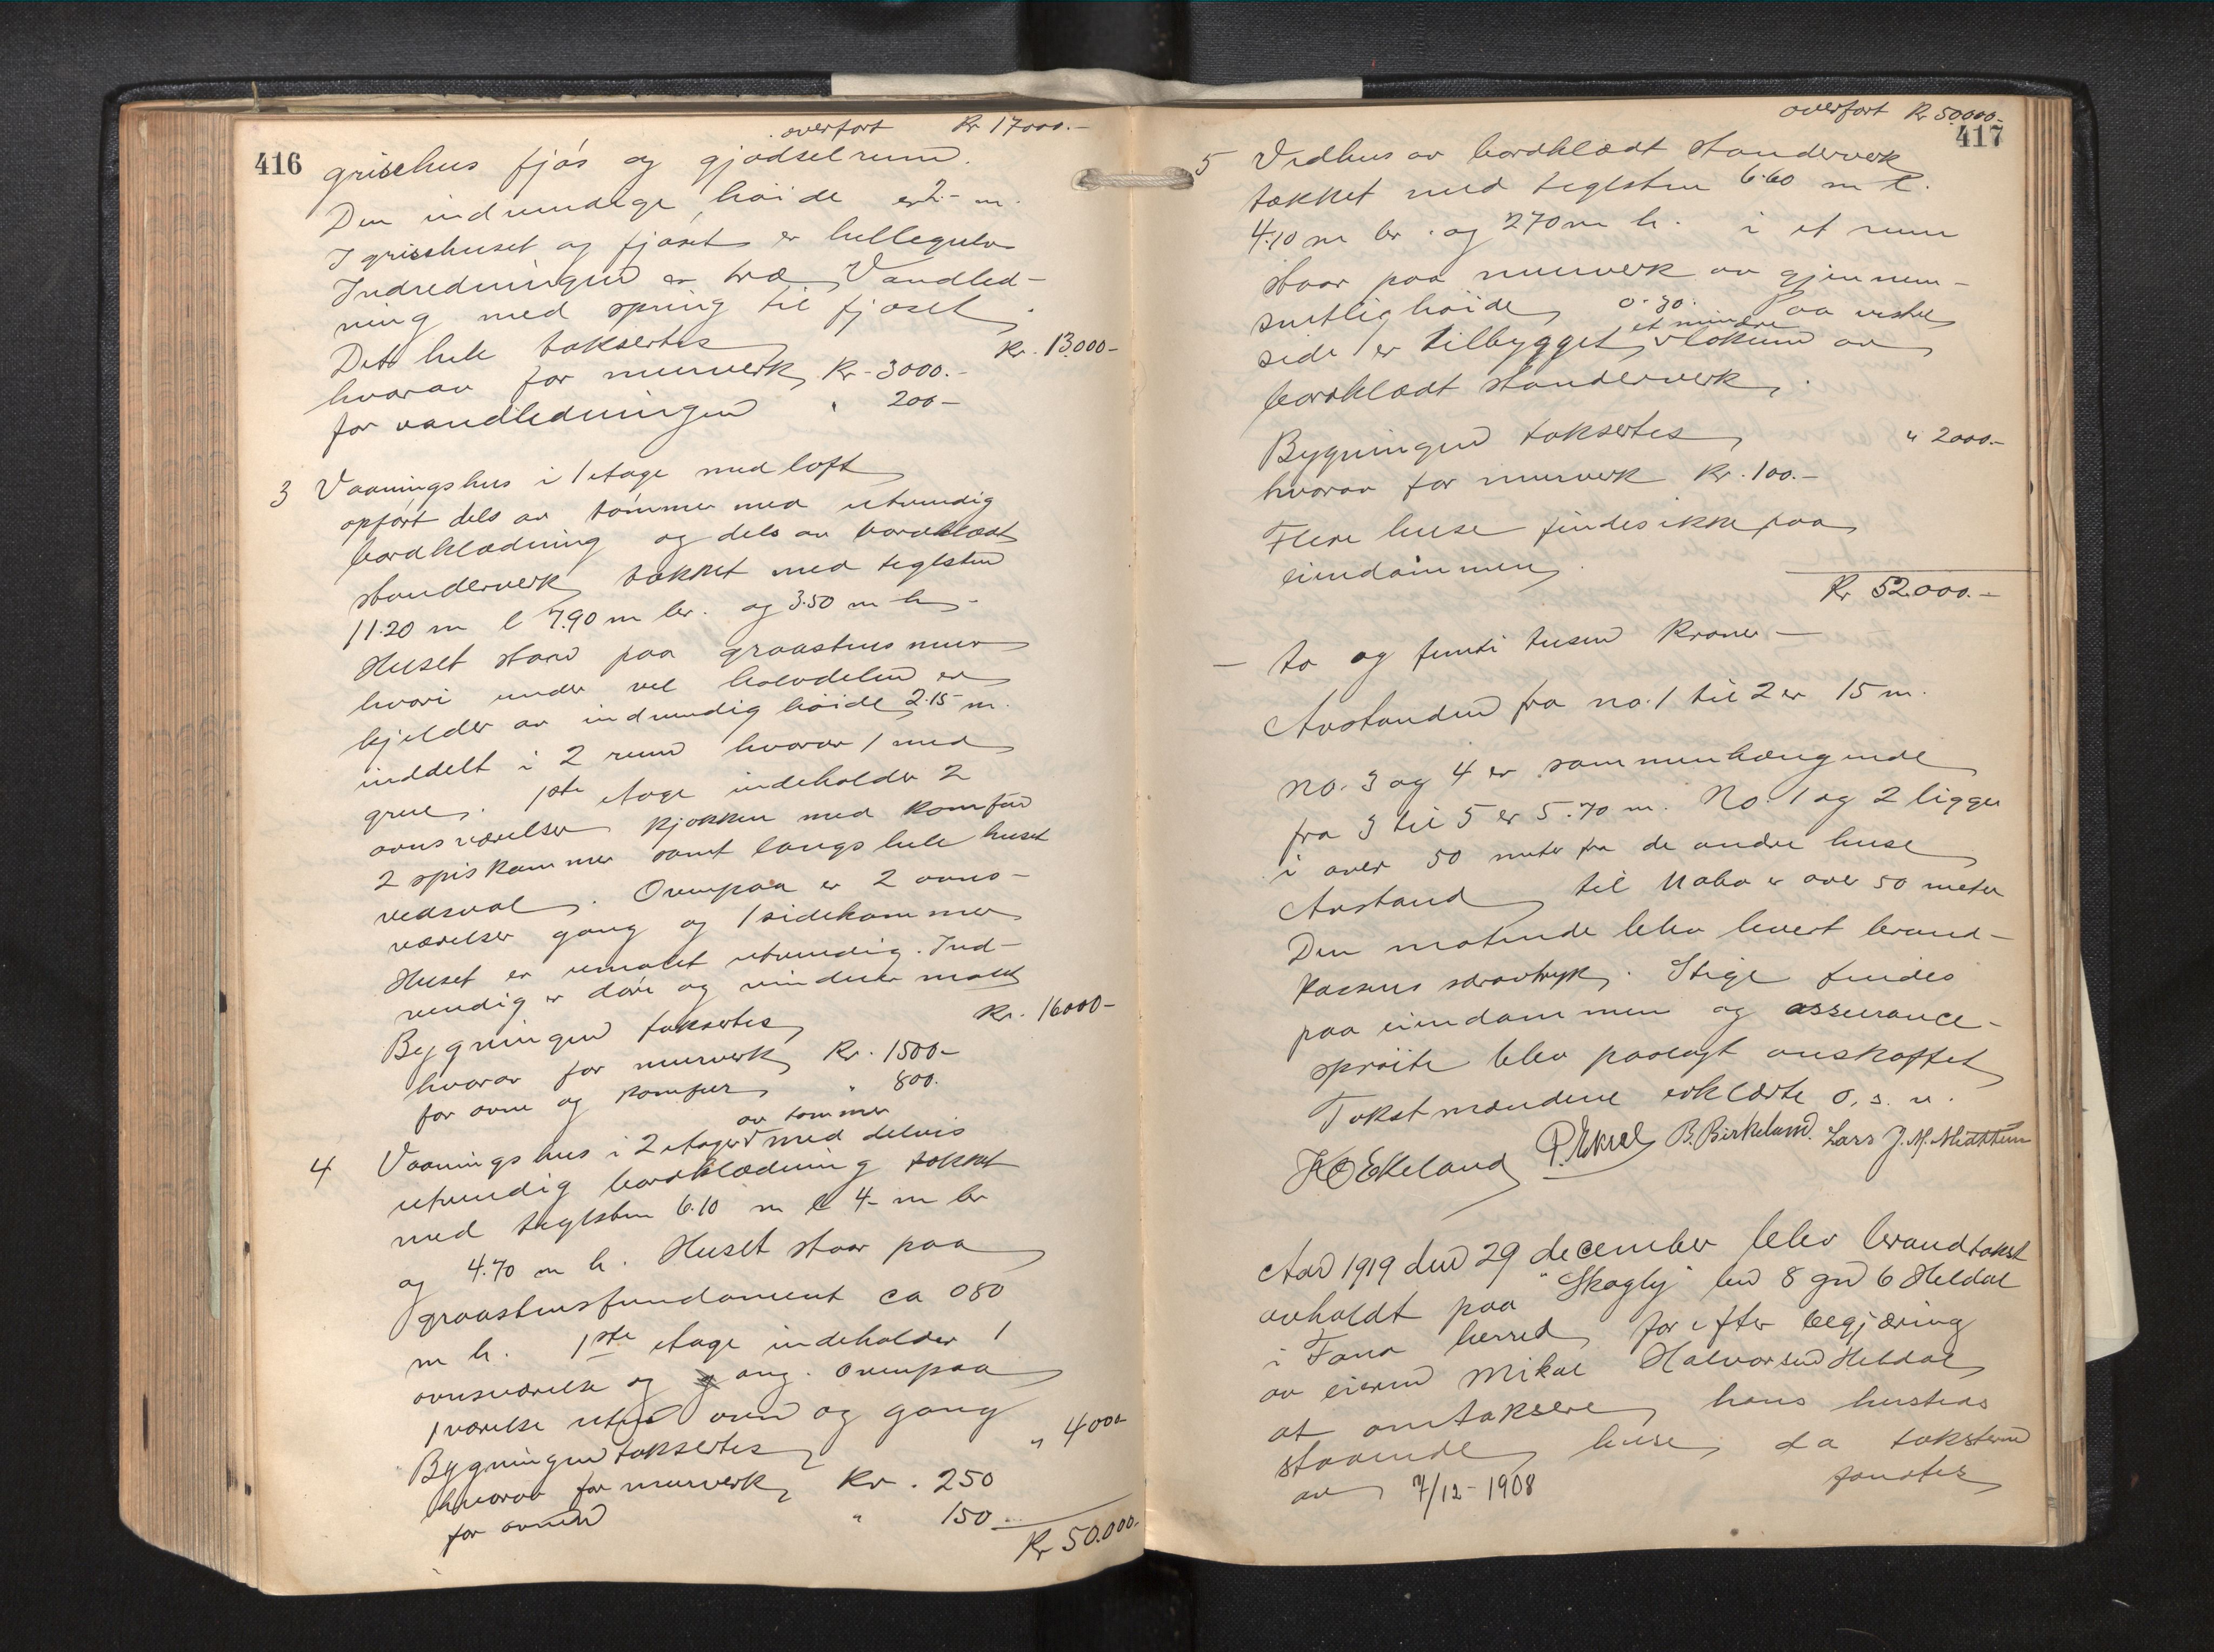 overført Kr 17000.-
416
grisehus fjøs og gjødselrum.
Den indvendige høide er 2.- m.
I grisehuset og fjøset er hellegulv
Indredningen er træ, Vandled-
ning med spring til fjøset.
Det hele taksertes Kr. 13.000-
hvorav for murverk, Kr- 3000.-
for vandledningen " 200-
3 Vaaningshus i 1 etage med loft
opført dels av tømmer med utvendig
bordklædning og dels av bordklædt
standerverk, tækket med teglsten
11.20 m l 7.90 m br. og 3.50 m h.
Huset staar paa graastensmur
hvori under vel halvdelen er
kjelder av indvendig høide 2.15 m.
inddelt i 2 rum hvorav 1 med
grue. 1ste etage indeholder 2
ovnsværelser kjøkken med komfur
2 spiskammer samt langs hele huset
vedsval. Ovenpaa er 2 ovns-
værelser gang og 1 sidekammer
Huset er umalet utvendig. Ind-
vendig er døre og vinduer malt
Bygningen taksertes, Kr. 16000-
hvorav for murverk, Kr. 1500-
for ovne og komfur " 800.
av tømmer
4 Vaaningshus i 2 etager med delvis
utvendig bordklædning tækket
med teglsten 6.10 m l 4.- m br
og 4.70 m h. Huset staar paa
graastensfundament ca 080
m h. 1ste etage indeholder 1
ovnsværelse og gang. Ovenpaa
1 værelse uten ovn og gang
Bygningen taksertes " 4000-
hvorav for murverk, Kr. 250
for ovnen " 150
Kr 50.000.-
overført Kr 50.000.-
417
5 Vedhus av bordklædt standerverk
tækket med teglsten 6.60 m l.
4.10 m br. og 270 m h. i et rum
staar paa murverk av gjennem-
snitlig høide, 0.30. Paa vestre
et mindre
side er tilbygget lokum av
bordklædt standerverk.
Bygningen taksertes, " 2000.-
hvorav for murverk Kr. 100.-
Flere huse findes ikke paa
eiendommen.
Kr 52.000.-
- to og femti tusen Kroner -
Avstanden fra no. 1 til 2 er 15 m.
No. 3 og 4 er sammenhængende
fra 3 til 5 er 5.70 m. No. 1 og 2 ligger
i over 50 meter fra de andre huse
Avstand til Nabo er over 50 meter
Den møtende blev levert brand-
kassens særavtryk. Stige findes
paa eiendommen og assurance-
sprøite blev paalagt anskaffet
Takstmændene erklærte o. s. v.
K O Ekeland P. Eknæs B. Birkeland. Lars J. M. Midttun
Aar 1919 den 29 december blev brandtakst
avholdt paa "Skogly" bn 8 gn 6 Heldal
i Fana herred for efter begjæring
av eieren Mikal Halvorsen Heldal
at omtaksere, hans hersteds
staaende huse, da taksterne
av 7/12-1908 fandtes